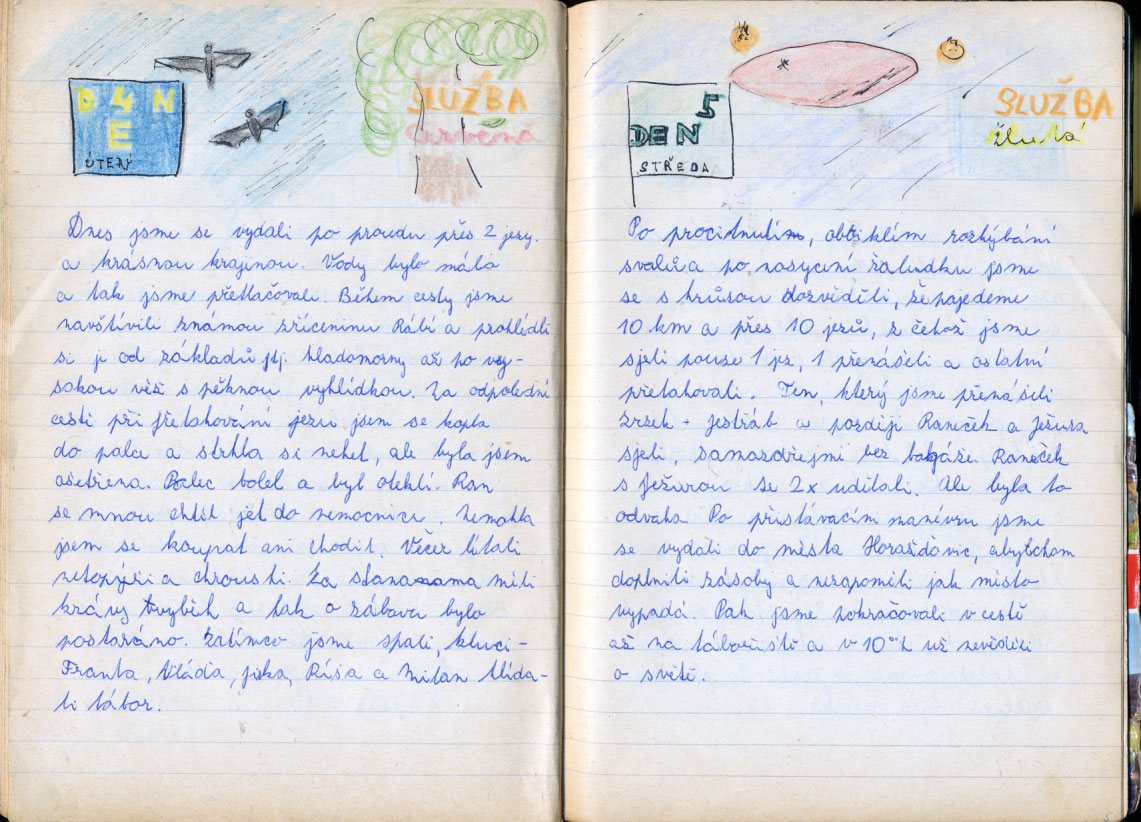 D4N
E
ÚTERÝ
SLUŽBA
červená
Dnes jsme se vydali po proudu přes 2 jezy.
a krásnou krajinou. Vody bylo málo
a tak jsme přetlačovali. Během cesty jsme
navštívili známou zříceninu Rábí a prohlédli
si ji od základů tj. hladomorny až po vy-
sokou věž s pěknou vyhlídkou. Za odpolední
cesti při přetahování jezu jsem se kopla
do palce a strhla si nehet, ale byla jsem
ošetřena. Palec bolel a byl oteklí. Ran
se mnou chtěl jet do nemocnice. Nemohla
jsem se koupat ani chodit. Večer lítali
netopýři a chrousti. Za stanama měli
krávy výběh a tak o zábavu bylo
postaráno. Zatímco jsme spali, kluci -
Franta, Vláďa, Jirka, Ríša a Milan hlída-
li tábor.
DEN 5
STŘEDA
SLUŽBA
žlutá
Po procidnutím, obtiklím rozhýbání
svalů a po nasycení žaludku jsme
se s hrůzou dozviděli, že pojedeme
10 km a přes 10 jezů, z čehož jsme
sjeli pouze 1 jez, 1 přenášeli a ostatní
přetahovali. Ten, který jsme přenášeli
Zrzek + Jestřáb a později Raneček a Ježura
sjeli, samozdřejmi bez bagáže. Raneček
s Ježurou se 2x udělali. Ale byla to
odvaha Po přistávacím manévru jsme
se vydali do města Horažďovic, abychom
doplnili zásoby a nezapomněli jak město
vypadá. Pak jsme pokračovali v cestě
až na tábořiště a v 10°° h už nevěděli
o světě.